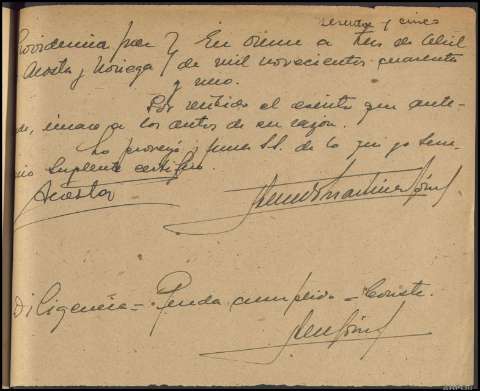 sesenta y cinco
Providencia Juez } En Orense a tres de Abril
Acosta y Noriega } de mil novecientos cuarenta
y uno.
Por recibido el escrito que ante-
de, únase a los autos de su razón.
Lo proveyó y firma SS. de lo que yo Secre-
rio Suplente certifico.
Acosta
Diligencia = Queda cumplido = Consta.